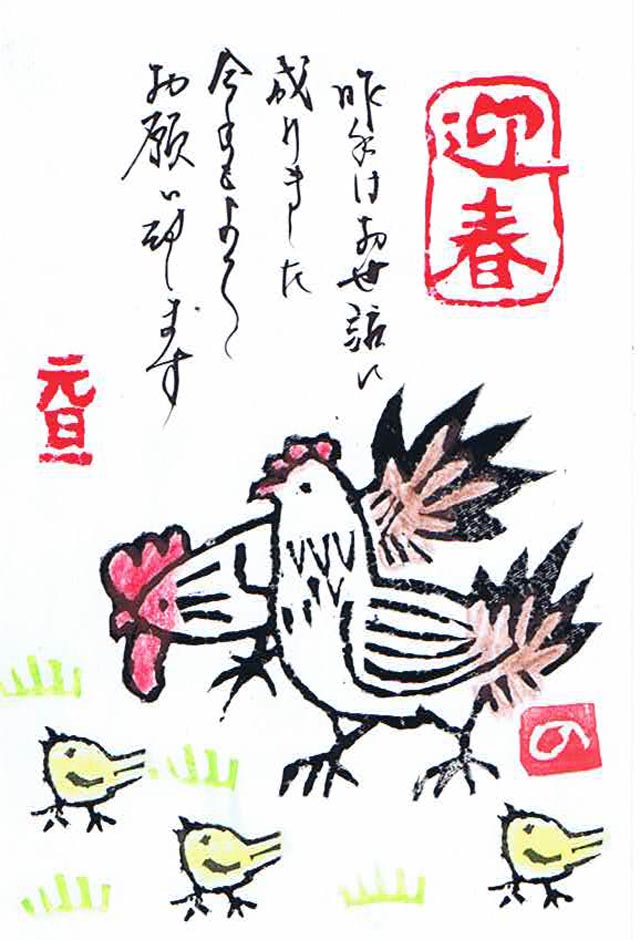 迎春
昨年はお世話に
成りました
今年もよろしく
お願い致します
元旦
の